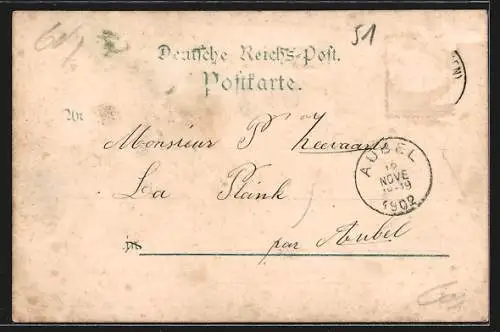 51
Deutsche Reichs-Post.
Postkarte.
An
Monsieur P Zeevaart
La Plank
in
par Aubel
AUBEL
12
NOVE
18-19
1902